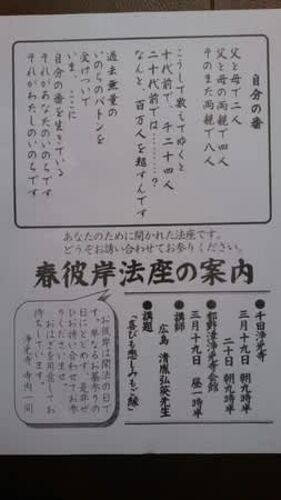 自分の番
父と母で二人
父と母の両親で四人
そのまた両親で八人
こうして数えてゆくと
十代前で、千二十四人
二十代前では………？
なんと、百万人を超すんです
過去無量の
いのちのバトンを
受けついで
いま、ここに
自分の番を生きている
それがあなたのいのちです
それがわたしのいのちです
あなたのために開かれた法座です。
どうぞお誘い合わせてお参りください。
春彼岸法座の案内
●千田浄光寺
三月十九日 朝九時半
二十日 朝九時半
●都野津浄光寺会館
三月十九日 昼一時半
●講師
広島 清胤弘英先生
●講題
「喜びも悲しみもご縁」
お彼岸は聞法の日で
す。単なるお墓参りの
日にとどめず、是非ぜ
ひお誘い合わせてお参
りくださいませ。
おはぎを用意してお
待ちしてます。
浄光寺 寺内一同